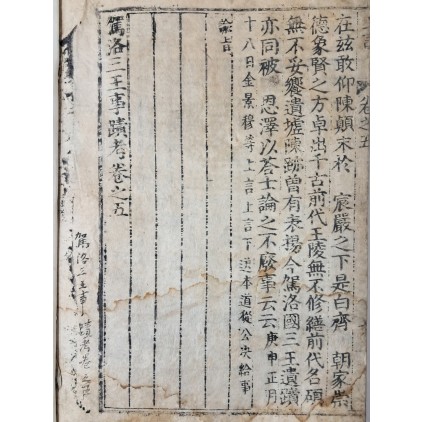 在玆敢仰陳顛末於 宸嚴之下是白齊 朝家崇
德象賢之方卓出千古前代王陵無不修繕前代名碩
無不妥饗遺墟陳跡曾有表揚今駕洛國三王遺蹟
亦同被 恩澤以答士論之不廢事云云 庚申正月
十八日金景穆等上言上言下 本道從公決給事
諭旨
駕洛三王事蹟考卷之五
駕洛三王事蹟考卷之五
卷之五